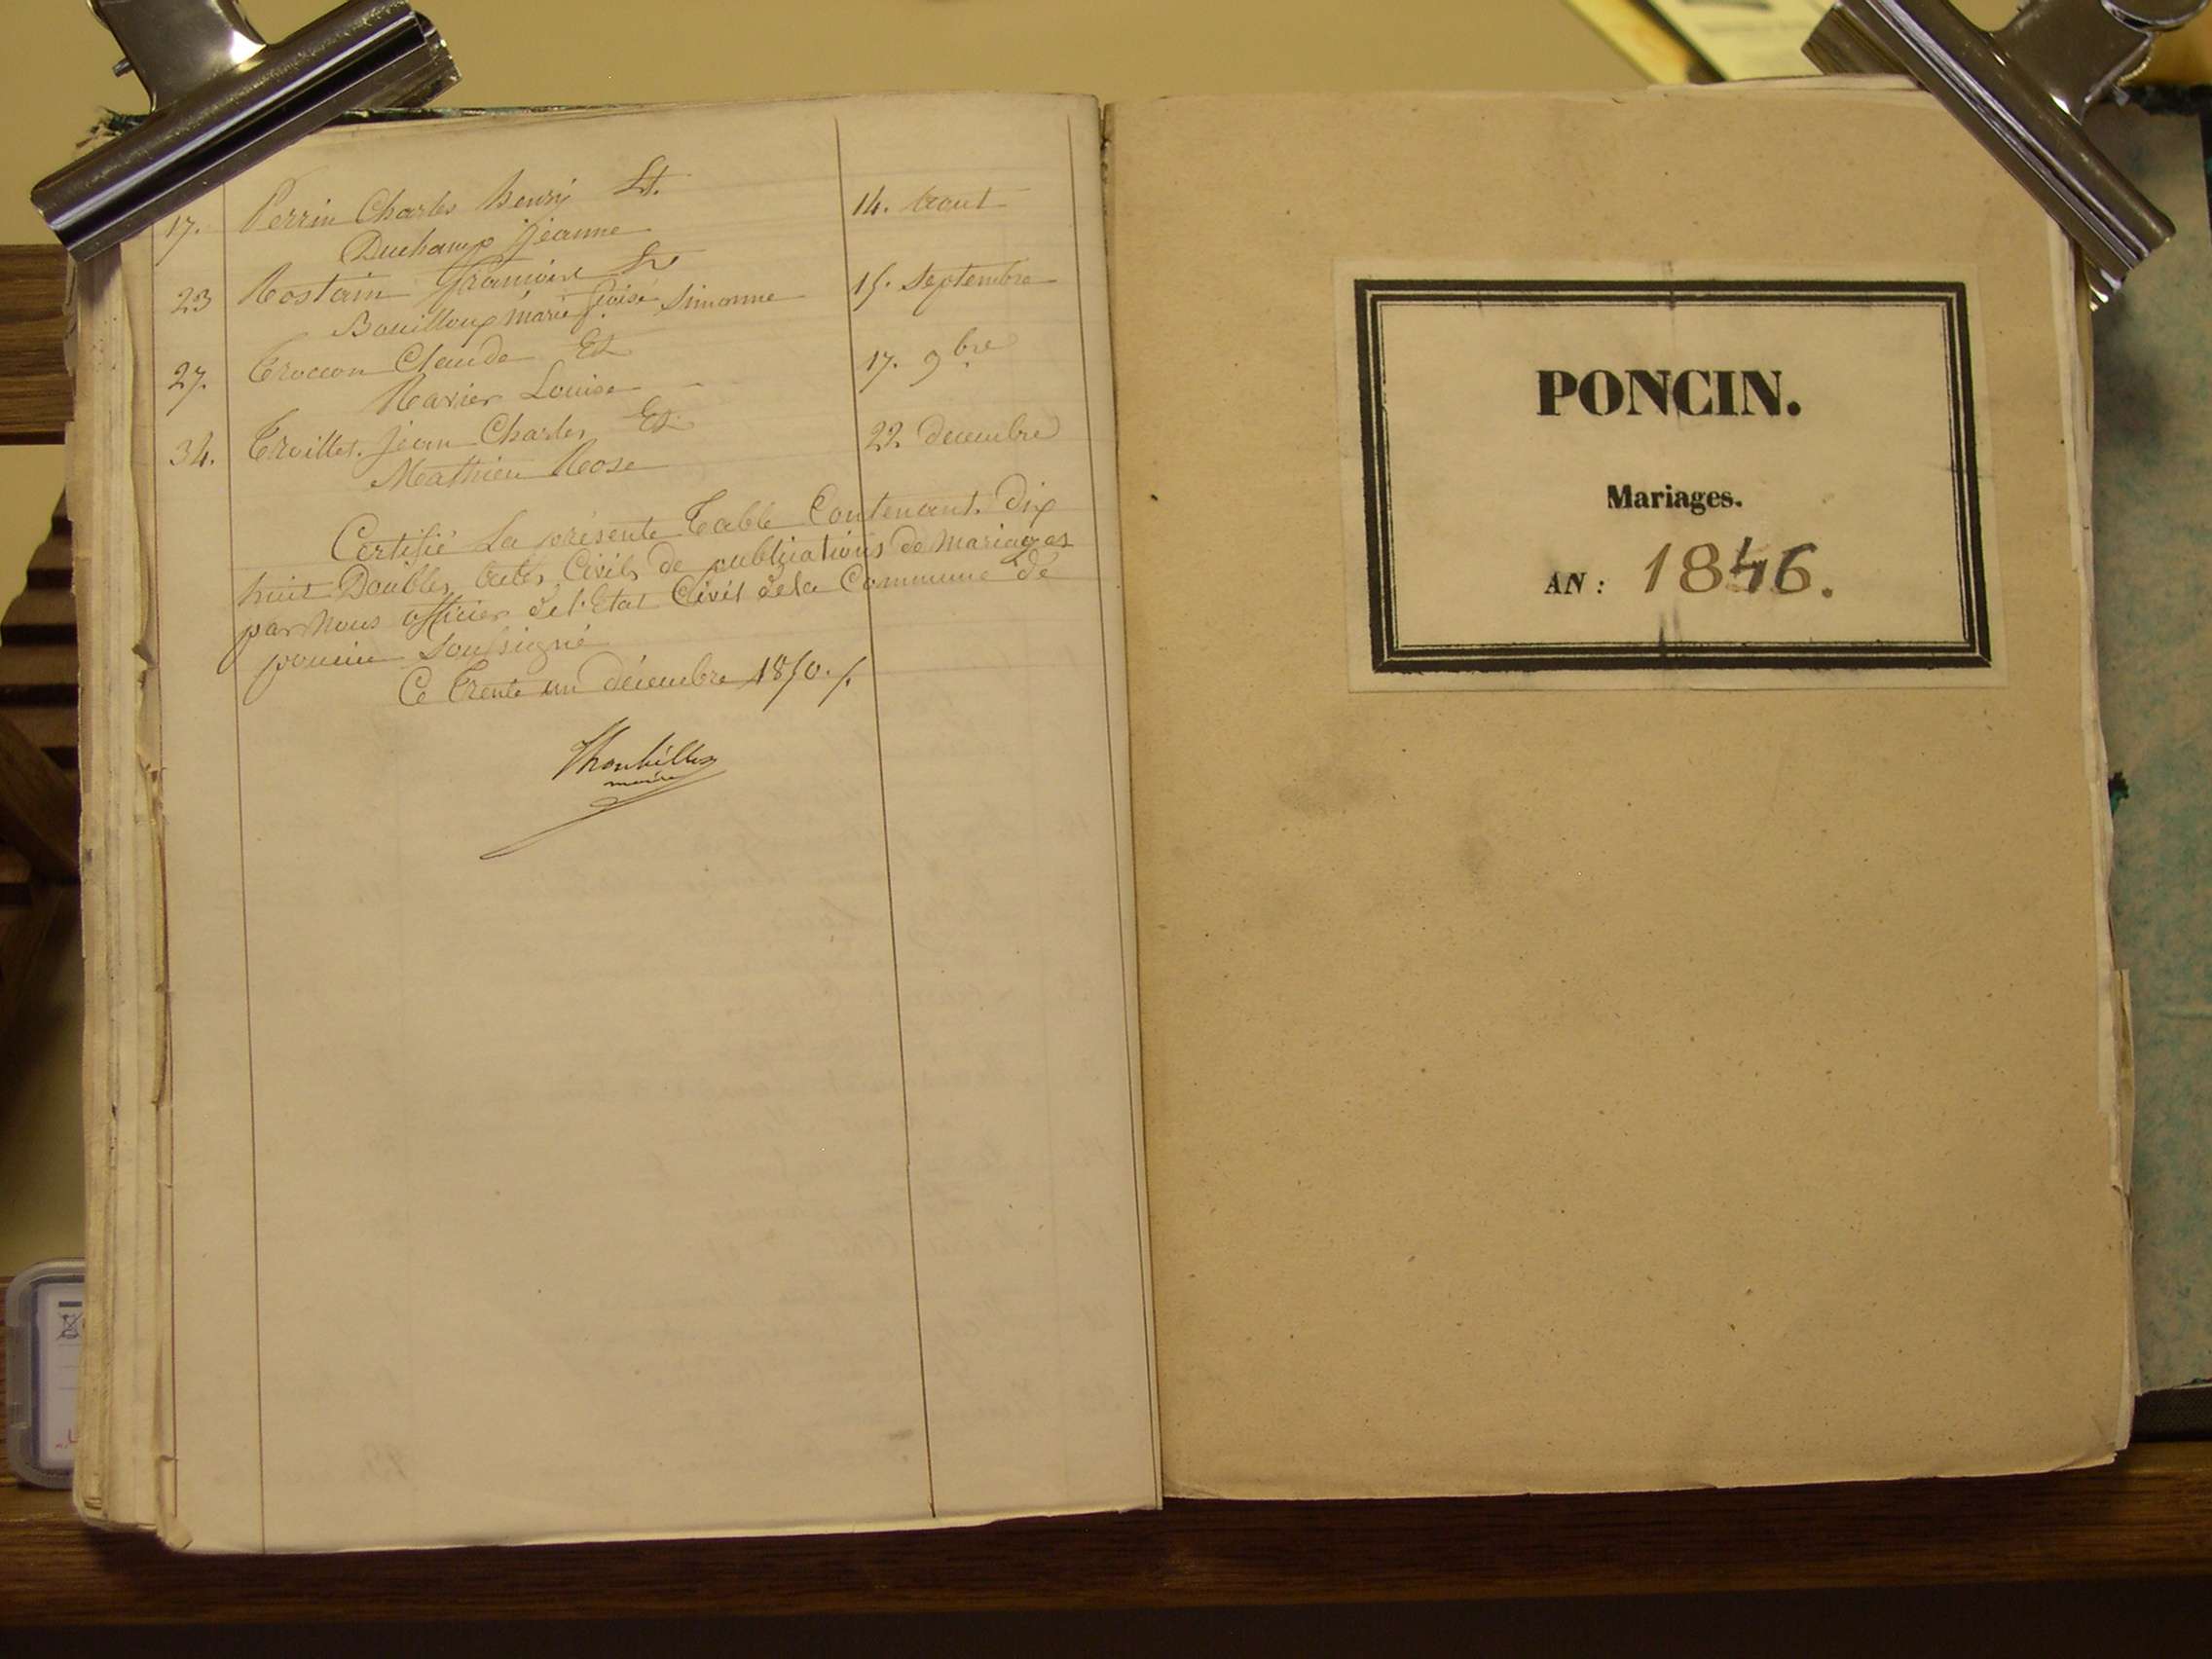 17. Perrin Charles henry Et. 14. Aout
Duchamp jéanne
23 Rostain françois Et 15. Septembre
Bouilloux marie fçoise Simonne
27. Troccon Claude Et 17. 9bre
Ravier Louise
34. Troillet jean Charles Et 22 decembre
Mathieu Rose
Certifié La présente Table Contenant Dix
huit Doubles actes Civils de publications de Mariages
par Nous officier de l'Etat Civil dela Commune de
poncin Soussigné
Ce Trente un décembre 1850./.
maire
PONCIN.
Mariages.
AN : 1846.